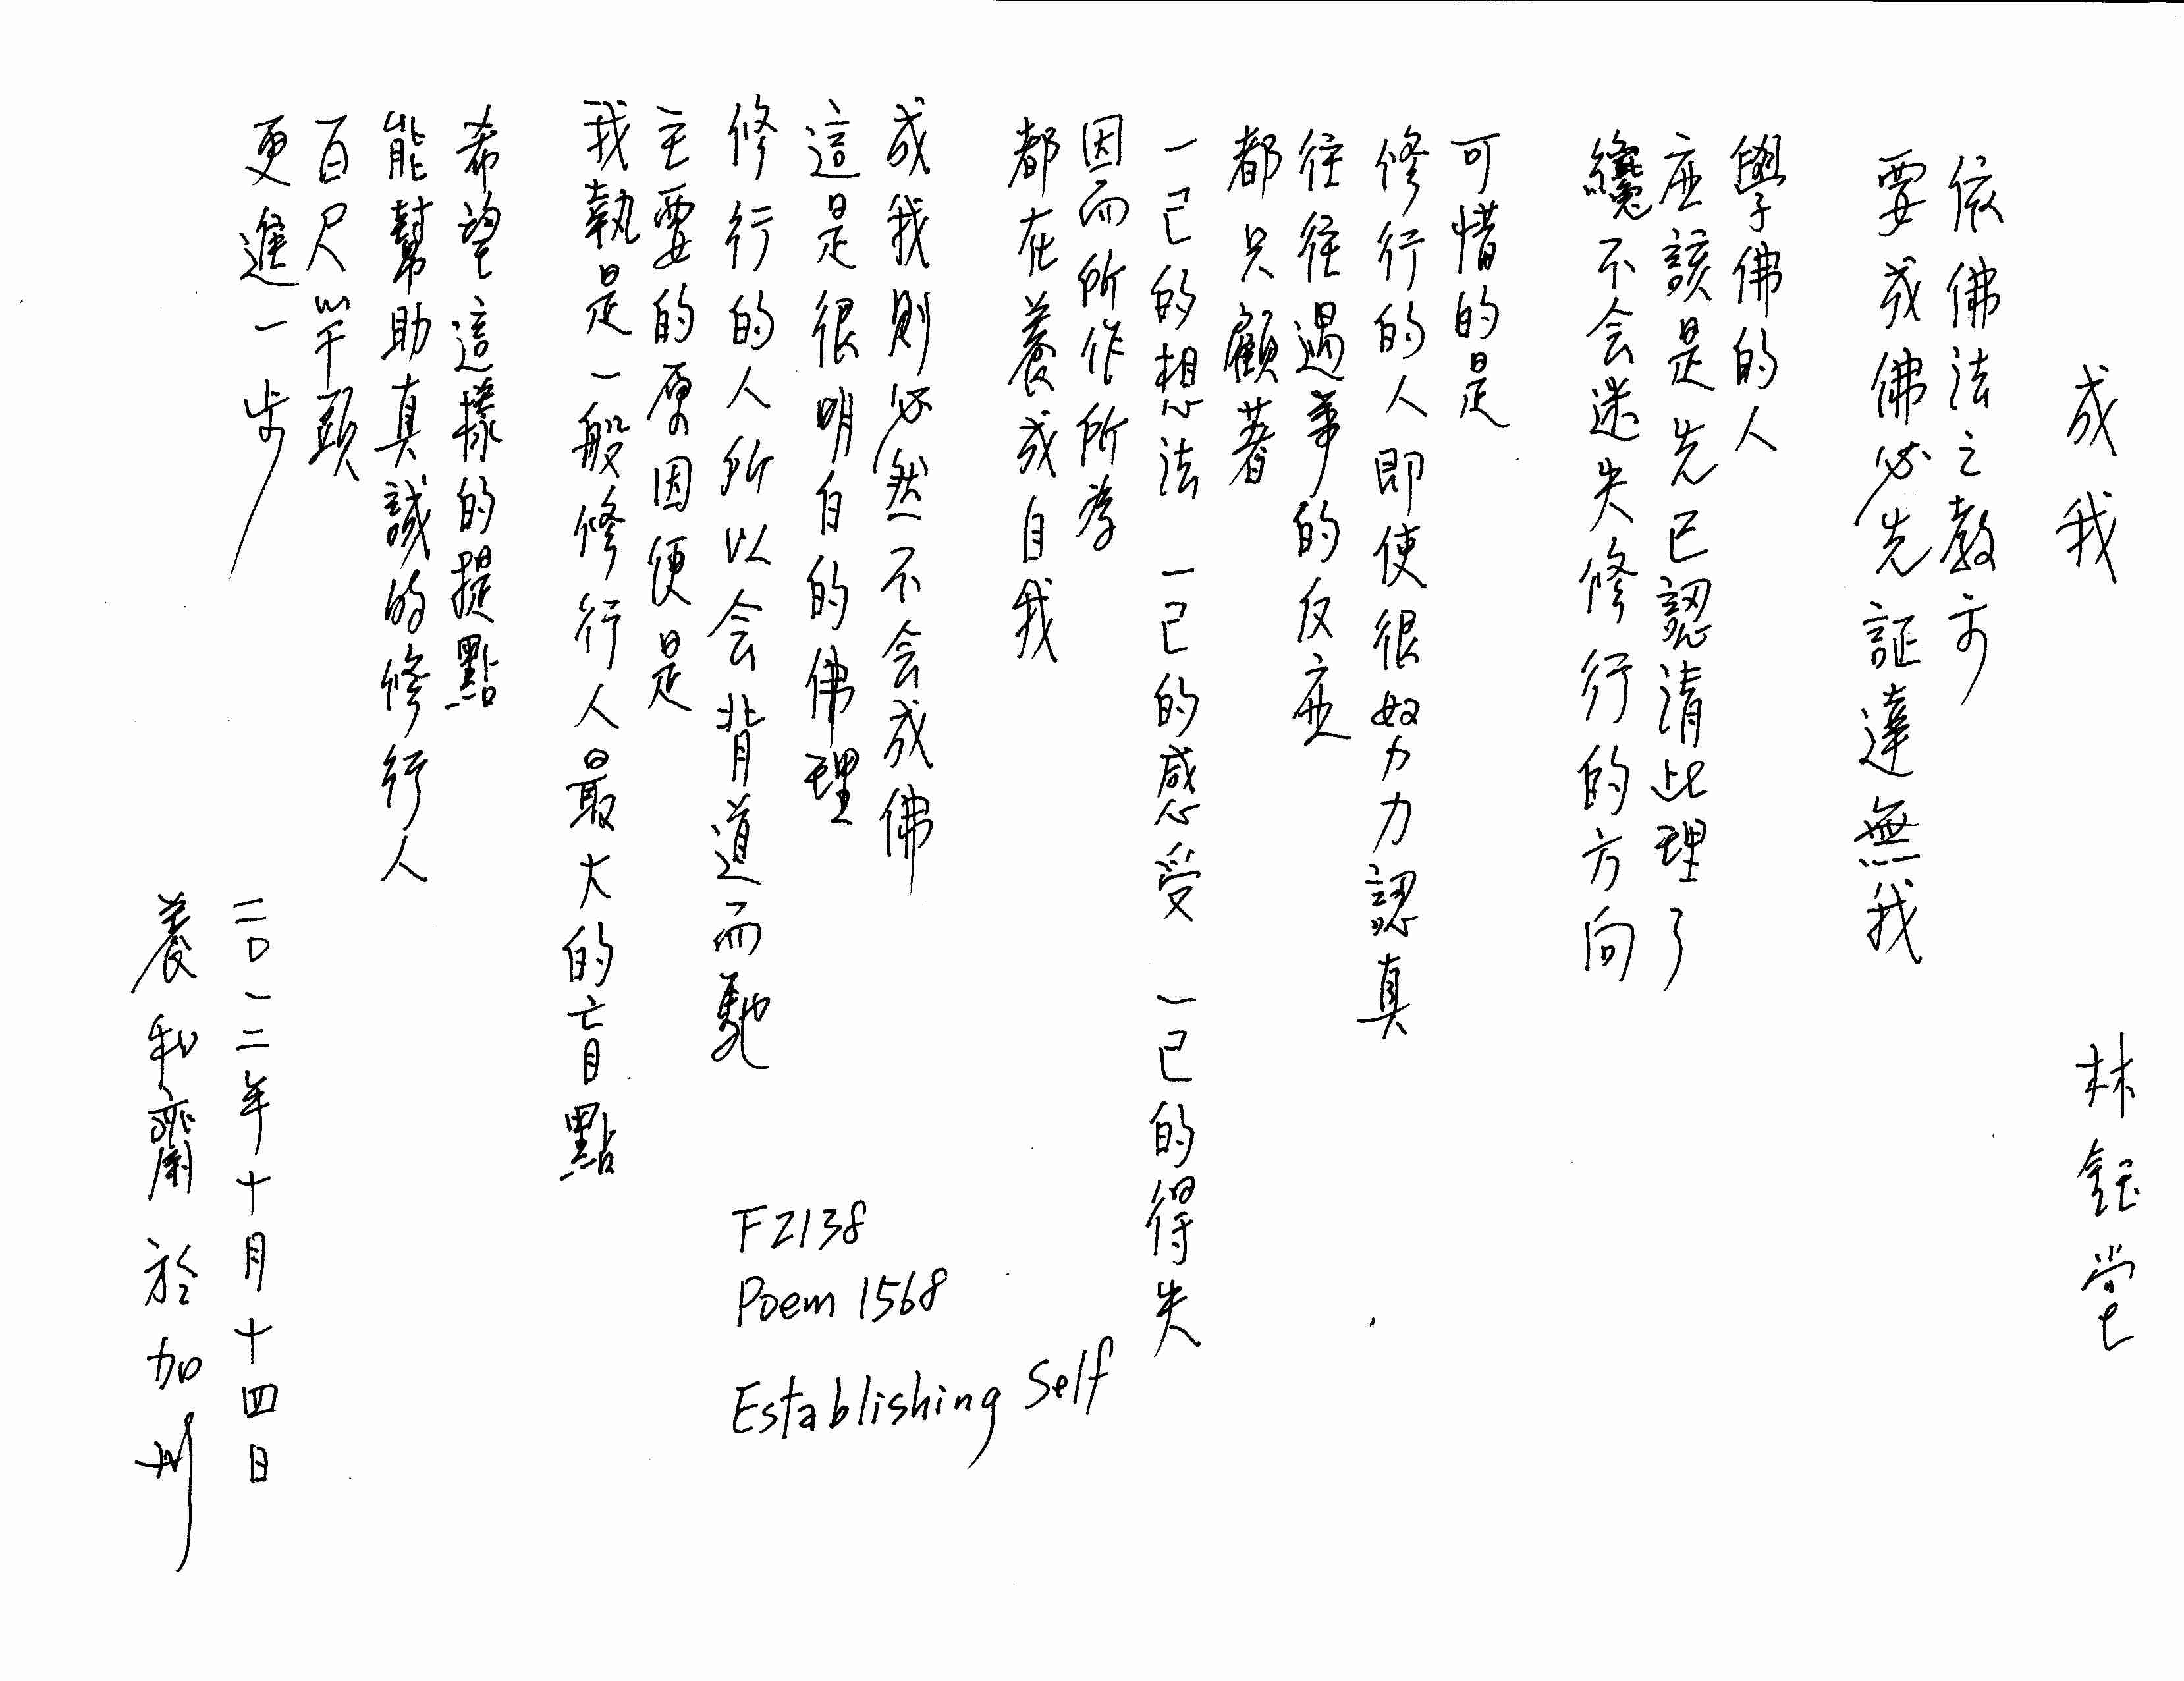 成我　林鈺堂
依佛法之教示
要成佛必先証達無我
學佛的人
应該是先已認清此理了
纔不会迷失修行的方向
可惜的是
修行的人即使很努力認真
往往遇事的反应
都只顧著
一己的想法　一己的感受　一己的得失
因而所作所為
都在養成自我
成我則必然不会成佛
這是很明白的佛理
修行的人所以会背道而馳
主要的原因便是
我執是一般修行人最大的盲點
希望這樣的提點
能幫助真誠的修行人
百尺竿頭
更進一步
二〇一二年十月十四日
養和齋　於加州
FZ138
Poem 1568
Establishing Self